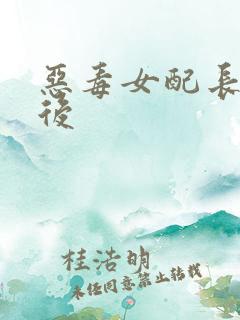 惡毒女配長
後
桂浩明
未任同意禁止转载